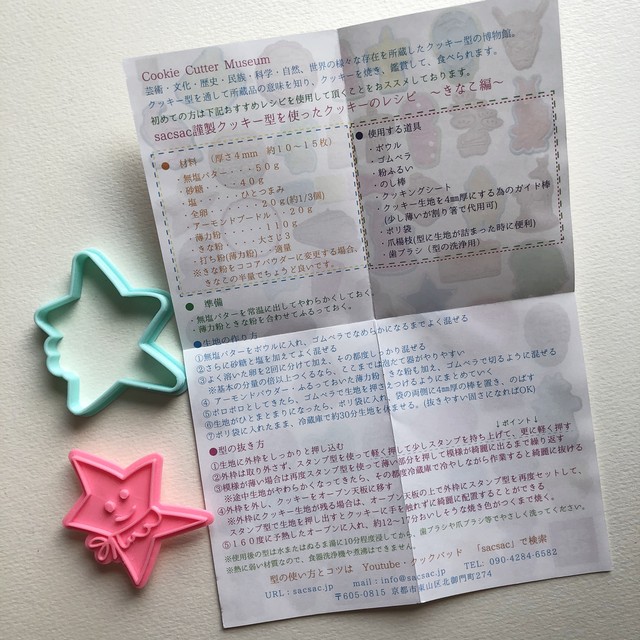 Cookie Cutter Museum
芸術・文化・歴史・民族・科学・自然、世界の様々な存在を所蔵したクッキー型の博物館。
クッキー型を通して所蔵品の意味を知り、クッキーを焼き、鑑賞して、食べられます。
初めての方は下記おすすめレシピを使用して頂くことをおススメしております。
sacsac謹製クッキー型を使ったクッキーのレシピ ～きなこ編～
● 材料 (厚さ4mm 約10～15枚)
・無塩バター・・・・50g
・砂糖・・・・40g
・塩・・・・・・ひとつまみ
・全卵・・・・・20g(約1/3個)
・アーモンドプードル・・20g
・薄力粉・・・・・110g
・きな粉・・・・大さじ3
・打ち粉(薄力粉)・・適量
※きな粉をココアパウダーに変更する場合、
きなこの半量でちょうど良いです。
● 使用する道具
・ボウル
・ゴムベラ
・粉ふるい
・のし棒
・クッキングシート
・クッキー生地を4mm厚にする為のガイド棒
(少し薄いが割り箸で代用可)
・ポリ袋
・爪楊枝(型に生地が詰まった時に便利)
・歯ブラシ (型の洗浄用)
● 準備
・無塩バターを常温に出してやわらかくしておく。
・薄力粉ときな粉を合わせてふるっておく。
●生地の作り方
①無塩バターをボウルに入れ、ゴムベラでなめらかになるまでよく混ぜる
②さらに砂糖と塩を加えてよく混ぜる
③よく溶いた卵を2回に分けて加え、その都度しっかり混ぜる
※基本の分量の倍以上つくるなら、ここまでは泡だて器がやりやすい
④ アーモンドパウダー・ふるっておいた薄力粉・きな粉も加え、ゴムベラで切るように混ぜる
⑤ポロポロとしてきたら、ゴムベラで生地を押さえつけるようにまとめていく
⑥生地がひとまとまりになったら、ポリ袋に入れ、袋の両側に4mm厚の棒を置き、のばす
⑦ポリ袋に入れたまま、冷蔵庫で約30分生地を休ませる。(抜きやすい固さになればOK)
●型の抜き方
↓ポイント↓
①生地に外枠をしっかりと押し込む
②外枠は取り外さず、スタンプ型を使って軽く押し
て少しスタンプを持ち上げて、更に軽く押す
③模様が薄い場合は再度スタンプ型を使って薄い部分を押して模様が綺麗に出るまで繰り返す
※途中生地がやわらかくなってきたら、その都度冷蔵庫で冷やしながら作業すると綺麗に抜ける
④外枠を外し、クッキーをオーブン天板に移す
※外枠にクッキー生地が残る場合は、オーブン天板の上で外枠にスタンプ型を再度セットして、
スタンプ型で生地を押し出すとクッキーに手を触れずに綺麗に配置することができる
⑤160度に予熱したオーブンに入れ、約12～17分おいしそうな焼き色がつくまで焼く。
※使用後の型は水またはぬるま湯に10分程度浸してから、歯ブラシや爪ブラシ等でやさしく洗ってください。
※熱に弱い材質なので、食器洗浄機や煮沸はできません
型の使い方とコツは Youtube・クックパッド 「sacsac」で検索
URL：sacsac.jp mail：info@sacsac.jp TEL：090-4284-6582
〒605-0815 京都市東山区北御門町274